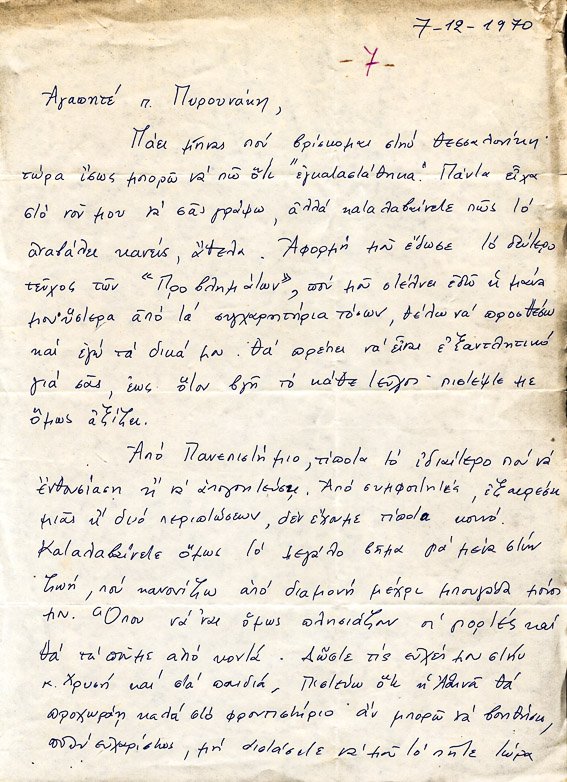 7-12-1970
-7-
Ἀγαπητέ π. Πυρουνάκη,
Πάει μήνας πού βρίσκομαι στήν Θεσσαλονίκη.
τώρα ἴσως μπορῶ νά πῶ ὅτι "ἐγκαταστάθηκα". Πάντα εἶχα
στό νοῦ μου νά σᾶς γράψω, ἀλλά καταλαβαίνετε πῶς τό
ἀναβάλει κανείς, ἄθελα. Ἀφορμή μοῦ ἔδωσε τό δεύτερο
τεῦχος τῶν "Προβλημάτων", πού μοῦ στέλνει ἐδῶ ἡ μάνα
μου· ὕστερα ἀπό τά συγχαρητήρια τόσων, θέλω νά προσθέσω
καί ἐγώ τά δικά μου. Θά πρέπει νά εἶναι ἐξαντλητικό
γιά σᾶς, ἕως ὅτου βγῆ τό κάθε τεῦχος· πιστέψτε με
ὅμως ἀξίζει.
Ἀπό Πανεπιστήμιο, τίποτα τό ἰδιαίτερο πού νά
ἐνθουσιάση ἤ νά ἀπογοητεύση. Ἀπό συμφοιτητές, ἐξαιρέσει
μιᾶς ἤ δυό περιπτώσεων, δέν ἔχομε τίποτα κοινό.
Καταλαβαίνετε ὅμως τό μεγάλο βῆμα γιά μένα στήν
ζωή, πού κανονίζω ἀπό διαμονή μέχρι μπουγάδα μόνη
μου. Ὅπου νά 'ναι ὅμως πλησιάζουν οἱ γιορτές καί
θά τά ποῦμε ἀπό κοντά. Δῶστε τίς εὐχές μου στήν
κ. Χρυσή καί στά παιδιά, Πιστεύω ὅτι ἡ Ἀθηνᾶ θά
προχωράη καλά στό φροντιστήριο· ἄν μπορῶ νά βοηθήσω,
πολύ εὐχαρίστως, μή διστάσετε νά μοῦ τό πῆτε τώρα